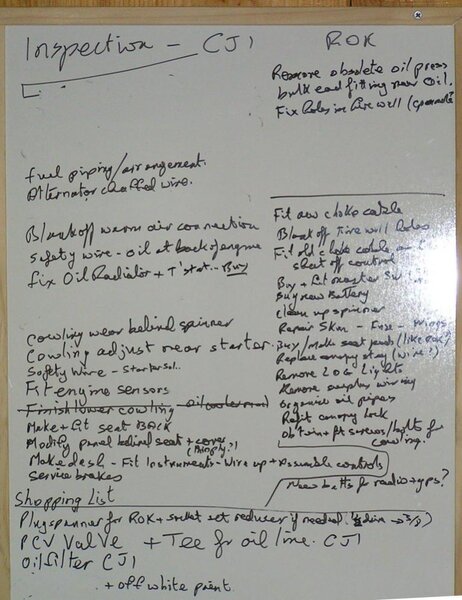 Inspection - CJ1
fuel piping/arrangement.
Alternator chaffed wire.
Blankoff warm air connection
safety wire - oil at back of engine
fix Oil Radiator + T'stat. - Buy
Cowling wear behind spinner
Cowling adjust near starter.
Safety Wire - Starter sol.
Fit engine sensors
Finish lower cowling oil cooler
Make + fit seat BACK
Modify panel behind seat + cover
Make desk - Fit Instruments - Wire up + Assemble controls
Service brakes
ROK
Remove obsolete oil press
bulkead fitting near oil.
Fix holes in firewall
Fit new choke cable
Blank off Firewall holes
Fit old choke cable
shut off control
Buy + fit master
Buy new Battery
Clean up spinner
Repair Skin - Fuse - wings
Buy/Make seat pads (like ROK)
Replace canopy stay (wire?)
Remove LOG Lights
Remove surplus wiring
Organise oil pipes
Refit canopy lock
Obtain + ft screws/bolts for
cowling.
New batts for radio + gps?
Shopping List
Plugspanner for ROK + socket set reducer if needed.
PCV Valve + Tee for oil line. CJ1
Oil filter CJ1
+ off white paint.